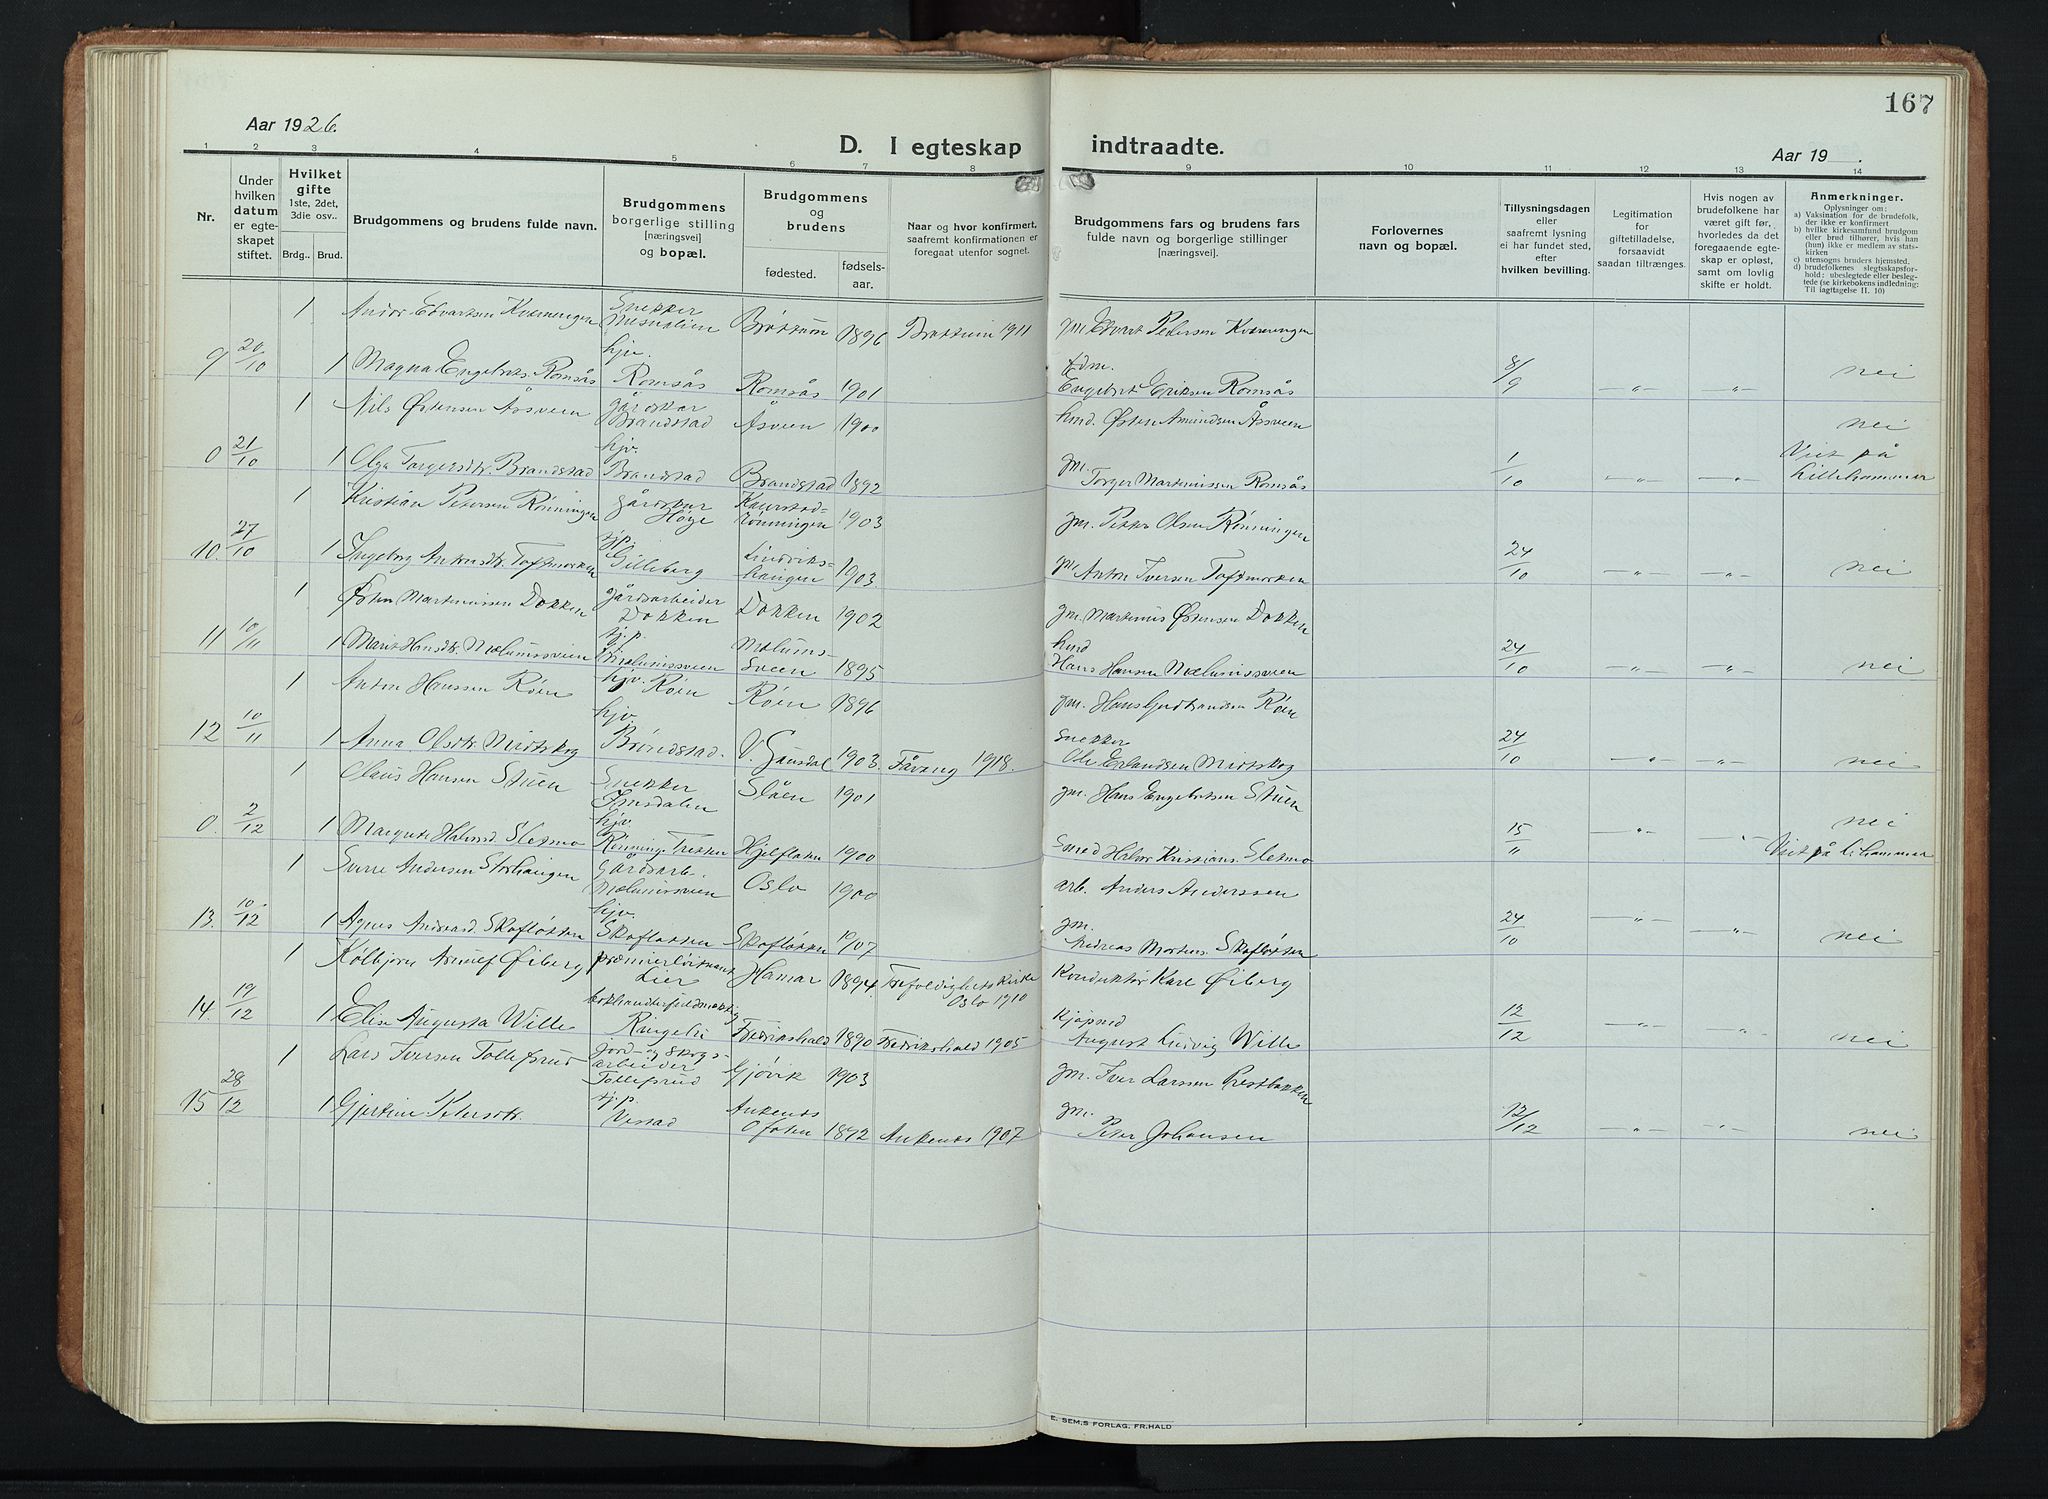 167
Aar 1926.
D. I egteskap indtraadte.
Aar 19 .
1 2 3 4 5 6 7 8 9 10 11 12 13 14
Nr.
Under hvilken datum er egteskapet stiftet.
Hvilket gifte 1ste, 2det, 3die osv..
Brdg.. Brud.
Brudgommens og brudens fulde navn.
Brudgommens borgerlige stilling [næringsvei] og bopæl.
Brudgommens og brudens
fødested. fødselsaar.
Naar og hvor konfirmert, saafremt konfirmationen er foregaat utenfor sognet.
Brudgommens fars og brudens fars fulde navn og borgerlige stillinger [næringsvei].
Forlovernes navn og bopæl.
Tillysningsdagen eller saafremt lysning ei har fundet sted, efter hvilken bevilling.
Legitimation for giftetilladelse, forsaavidt saadan tiltrænges.
Hvis nogen av brudefolkene har været gift før, hvorledes da det foregaaende egteskap er opløst, samt om lovlig skifte er holdt.
Anmerkninger.
Oplysninger om:
a) Vaksination for de brudefolk, der ikke er konfirmert
b) hvilke kirkesamfund brudgom eller brud tilhører, hvis han (hun) ikke er medlem av statskirken
c) utensogns bruders hjemsted.
d) brudefolkenes slegtsskapsforhold: ubeslegtede eller beslegtede (se kirkebokens indledning: Til iagttagelse II. 10)
1 Edvartsen Kværningen Snekker Brøttum 1896 Brøttum 1911 gm. Edvart Pedersen Kværningen
9 20/10 1 Magna Engebrets. Romsås hjv. Romsås Romsås 1901 fdm. Engebret Eriksen Romsås 8/9 —„— —„— nei
1 Nils Østensen Åssveen gårdskar Brandstad Åsveen 1900 husd. Østen Amundsen Åssveen nei
0 21/10 1 Olga Torgersdtr. Brandstad hjv. Brandstad Brandstad 1892 gm. Torger Martinussen Romsås 1/10 —„— —„— Viet på Lillehammer
1 Kristian Petersen Rønningen gårdskar Høge Kaurstadrønningen 1903 gm. Petter Olsen Rønningen
10. 27/10 1 Ingeborg Antonsdtr. Toftmorken tjp. Gilleberg Lindvikshaugen 1903 gm. Anton Iversen Toftmorken 24/10 —„— —„— nei
1 Østen Martinussen Dokken gårdsarbeider Dokken Dokken 1902 gm. Martinus Østensen Dokken
11 10/11 1 Marit Hansdtr. Mælumssveen tj.p. Mælumssveen Mælumssveen 1895 husd Hans Hansen Mælumssveen 24/10 —„— —„— nei
1 Anton Hanssen Røen hjv. Røen Røen 1896 gm. Hans Gudbrandsen Røen
12 10/11 1 Anna Olsdtr. Midtskog hjv. Brøndstad. V. Gausdal 1903. Fåvang 1918. Snekker Ole Erlandsen Midtskog 24/10 —„— —„— nei
1 Claus Hansen Stuen Snekker Imsdalen Slåen 1901 gm. Hans Engebretsen Stuen
0. 2/12 1 Margrete Halvorsd. Sletmo hjv. Rønning. Tretten Hjelflaten 1900 Smed Halvor Kristians. Sletmo 15/11 —„— —„— nei Viet på Lihammer
1 Sverre Andersen Storhaugen Gårdsarb. Mælumssveen Oslo 1900 arb. Anders Anderssen
13. 10/12 1 Agnes Andreasd. Skofløtten hjv. Skofløtten Skofløtten 1907 gm. Andreas Mortens. Skofløtten 24/10 —„— —„— nei
1 Kolbjørn Arnulf Øiberg premierløitnant Lier Hamar 1894. Trefoldighetskirke Oslo 1910 Konduktør Karl Øiberg
14. 19/12 1 Elise Augusta Wille Ringebu Fredrikshald 1890 Fredrikshald 1905 Kjøpmd August Ludvig Wille 12/12 —„— —„— nei
1 Lars Iversen Tollefsrud jord- og skogsarbeider Tollefsrud Gjøvik 1903 gm. Iver Larssen Prestbakken
15 28/12 1 Gjertine Petersdtr. tj.p. Vestad Ankenes Ofoten 1892 Ankenes 1907 gm. Peter Johansen 12/12 —„— —„— nei
E. SEM,S FORLAG, FR.HALD